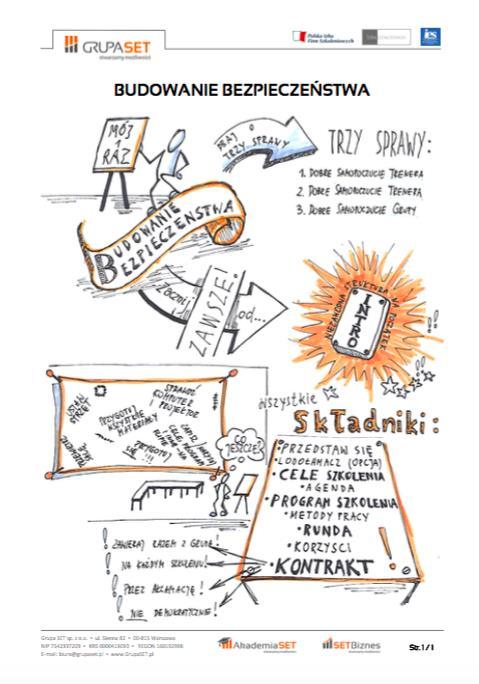 GRUPASET
stwarzamy możliwości
Polska Izba
Firm Szkoleniowych
BUDOWANIE BEZPIECZEŃSTWA
MÓJ
1
RAZ
DBAJ O
TRZY SPRAWY
TRZY SPRAWY:
1. DOBRE SAMOPOCZUCIE TRENERA
2. DOBRE SAMOPOCZUCIE TRENERA
3. DOBRE SAMOPOCZUCIE GRUPY
BUDOWANIE
BEZPIECZEŃSTWA
Zacznij
ZAWSZE!
od...
STRUKTURA NA POCZĄTEK
INTRO
!!
!!
wszystkie
Składniki:
SPRAWDŹ
KOMPUTER
I PROJEKTOR
USTAW
SPRZĘT
PRZYGOTUJ
WSZYSTKIE
MATERIAŁY
CELE, PROGRAM
PRZYGOTUJ
SIĘ !!!
CO
JESZCZE?
• PRZEDSTAW SIĘ
• LODOŁAMACZ (OPCJA)
• CELE SZKOLENIA
• AGENDA
• PROGRAM SZKOLENIA
• METODY PRACY
• RUNDA
• KORZYŚCI
• KONTRAKT
!
! ZAWIERAJ RAZEM Z GRUPĄ!
! NA KAŻDYM SZKOLENIU!
! PRZEZ AKLAMACJĘ!
! NIE DEMOKRATYCZNIE!
Grupa SET sp. z o.o. • ul. Sienna 82 • 00-815 Warszawa
NIP 7542937209 • KRS 0000419093 • REGON 160392988
E-mail: biuro@grupaset.pl • www.GrupaSET.pl
AkademiaSET
SETBiznes
Str. 1 / 1